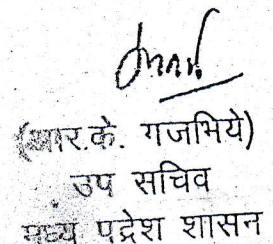 (आर.के. गजभिये)
उप सचिव
मध्य प्रदेश शासन